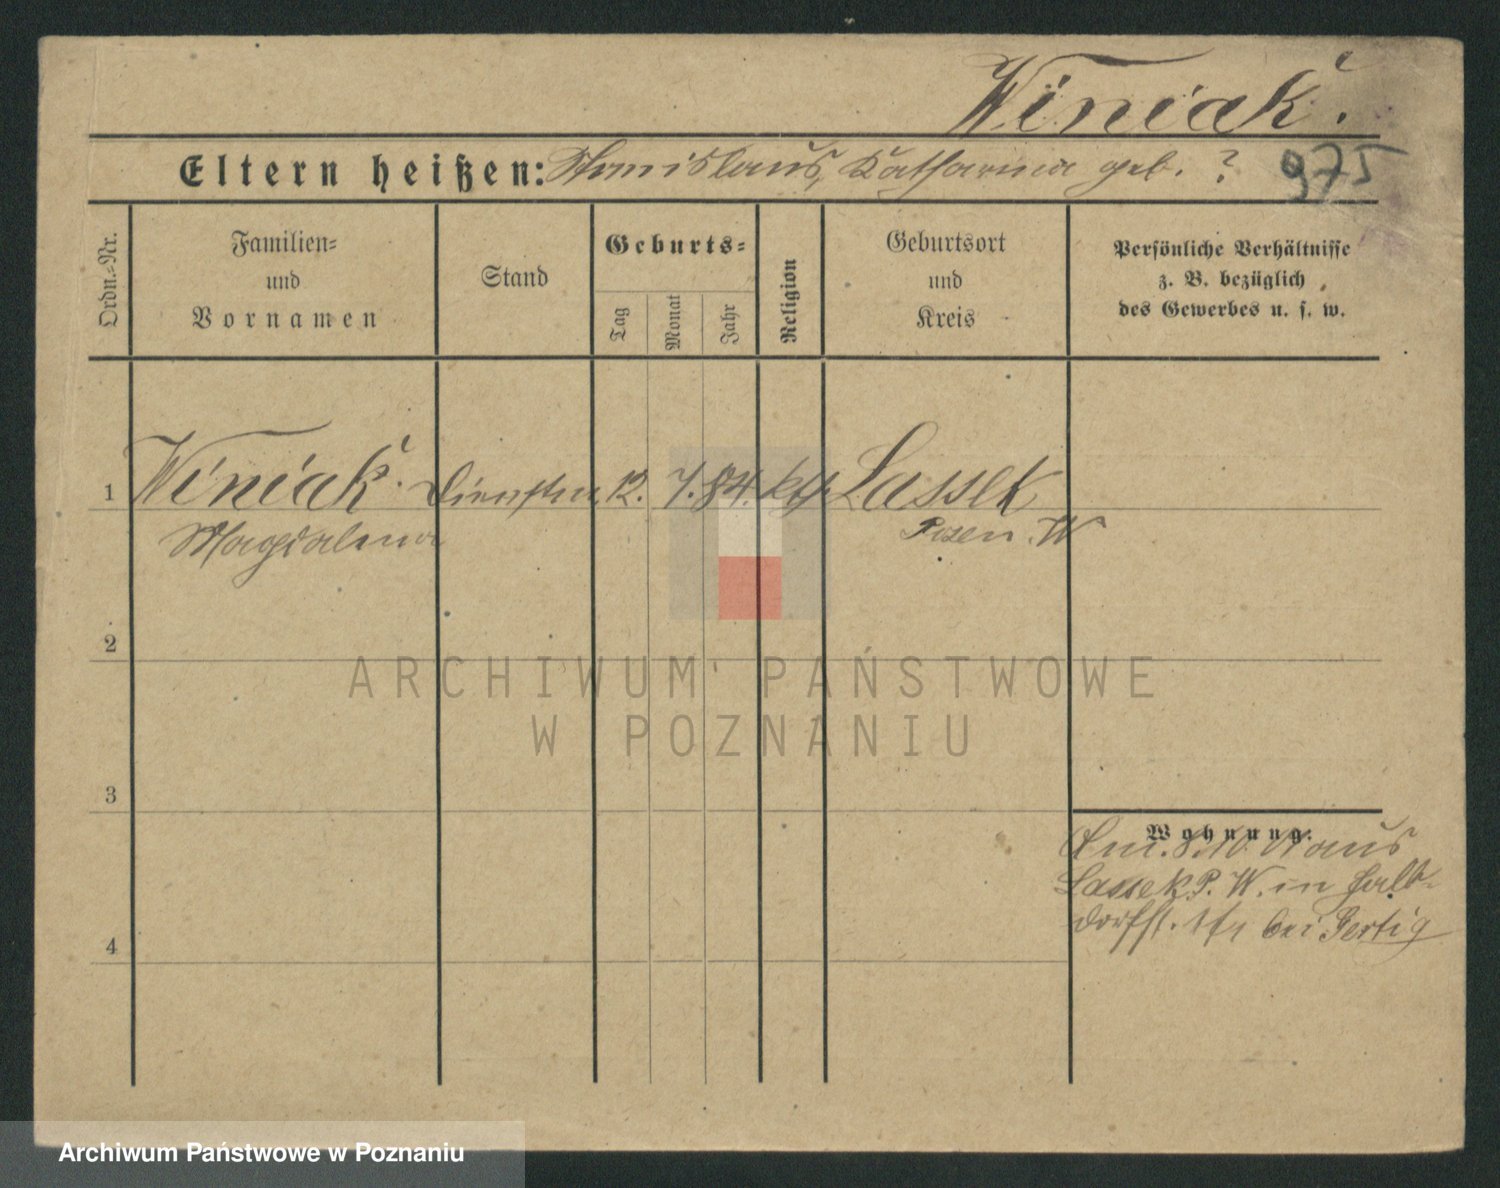 Winiak.
Eltern heißen: Stanislaus, Katharina geb. ?
975
Ordn.=Nr.
Familien=
und
Vornamen
Stand
Geburts=
Tag
Monat
Jahr
Religion
Geburtsort
und
Kreis
Persönliche Verhältnisse
z. B. bezüglich
des Gewerbes u. s. w.
1 Winiak. 12. 7. 84. kth Lassek
Magdalena Posen. W
2
ARCHIWUM PAŃSTWOWE
W POZNANIU
3
Wohnung.
Am. 8. 10. 01 aus
Lassek P. W. in Halb-
dorfst. bei Gertig
4
Archiwum Państwowe w Poznaniu